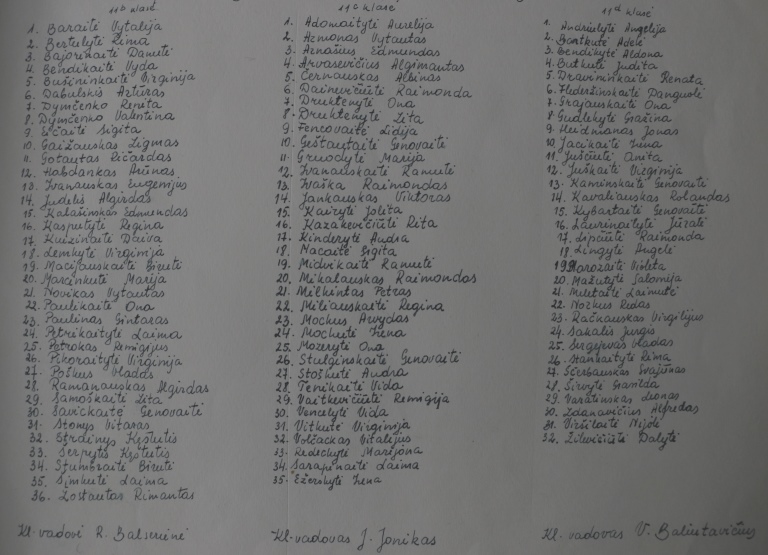 11b klasė
1. Baraitė Vytalija
2. Bertulytė Rima
3. Bajorinaitė Danutė
4. Bendikaitė Vyda
5. Bušininkaitė Virginija
6. Dabulskis Artūras
7. Dymčenko Renita
8. Dymčenko Valentina
9. Ečaitė Sigita
10. Gaižauskas Zigmas
11. Gotautas Ričardas
12. Hobdankas Arūnas
13. Ivanauskas Eugenijus
14. Judelis Algirdas
15. Kalašinskas Edmundas
16. Kasputytė Regina
17. Kuizinaitė Daiva
18. Lemkytė Virginija
19. Macijauskaitė Birutė
20. Marcinkutė Marija
21. Novikas Vytautas
22. Paulikaitė Ona
23. Paulinas Gintaras
24. Petreikaitytė Laima
25. Petrokas Remigijus
26. Pikoraitytė Virginija
27. Poškus Vladas
28. Ramanauskas Algirdas
29. Samoškaitė Zita
30. Savickaitė Genovaitė
31. Stonys Vitaras
32. Strdinys Kęstutis
33. Serpytis Kęstutis
34. Stumbraitė Birutė
35. Šimkutė Laima
36. Zostautas Rimantas
Kl. vadovė R. Balsenienė
11c klasė
1. Adomaitytė Aurelija
2. Azmonas Vytautas
3. Aznašius Edmundas
4. Arvasevičius Algimantas
5. Černauskas Albinas
6. Daimevičiūtė Raimonda
7. Druktenytė Ona
8. Druktenytė Zita
9. Fencovaitė Lidija
10. Geštautaitė Genovaitė
11. Gruodytė Marija
12. Ivanauskaitė Ramutė
13. Ivaška Raimondas
14. Jankauskas Viktoras
15. Kairytė Jolita
16. Kazakevičiūtė Rita
17. Kinderytė Audra
18. Macaitė Sigita
19. Midvikaitė Ramutė
20. Mikalauskas Raimondas
21. Milkintas Petras
22. Miliauskaitė Regina
23. Mockus Arvydas
24. Mockutė Irena
25. Mozerytė Ona
26. Stulginskaitė Genovaitė
27. Stoškutė Audra
28. Tenikaitė Vida
29. Vaitkevičiūtė Remigija
30. Venclytė Vida
31. Vitkutė Virginija
32. Volčackas Vitalijus
33. Kedeckytė Marijona
34. Sarapinaitė Laima
35. Ežerskytė Irena
Kl. vadovas J. Jonikas
11d klasė
1. Andriulytė Angelija
2. Bentkutė Adelė
3. Bendikytė Aldona
4. Butkutė Judita
5. Dravininkaitė Renata
6. Flederžinskaitė Danguolė
7. Grajauskaitė Ona
8. Gudlekytė Gražina
9. Heidmanas Jonas
10. Jacikaitė Irena
11. Juščiutė Anita
12. Juškaitė Virginija
13. Kaminskaitė Genovaitė
14. Kavaliauskas Rolandas
15. Kybartaitė Genovaitė
16. Laurinaitytė Jūratė
17. Lipčiutė Raimonda
18. Lingytė Angelė
19. Morozaitė Violeta
20. Mažutytė Salomėja
21. Miletaitė Laimutė
22. Nozkus Redas
23. Račnauskas Virgilijus
24. Sakalis Jurgis
25. Sergejevas Vladas
26. Stankaitytė Rima
27. Ščerbauskas Svajūnas
28. Širvytė Granilda
29. Varatinskas Leonas
30. Zdanavičius Alfredas
31. Viržilaitė Nijolė
32. Zilevičiūtė Dalytė
Kl. vadovas V. Baliutavičius